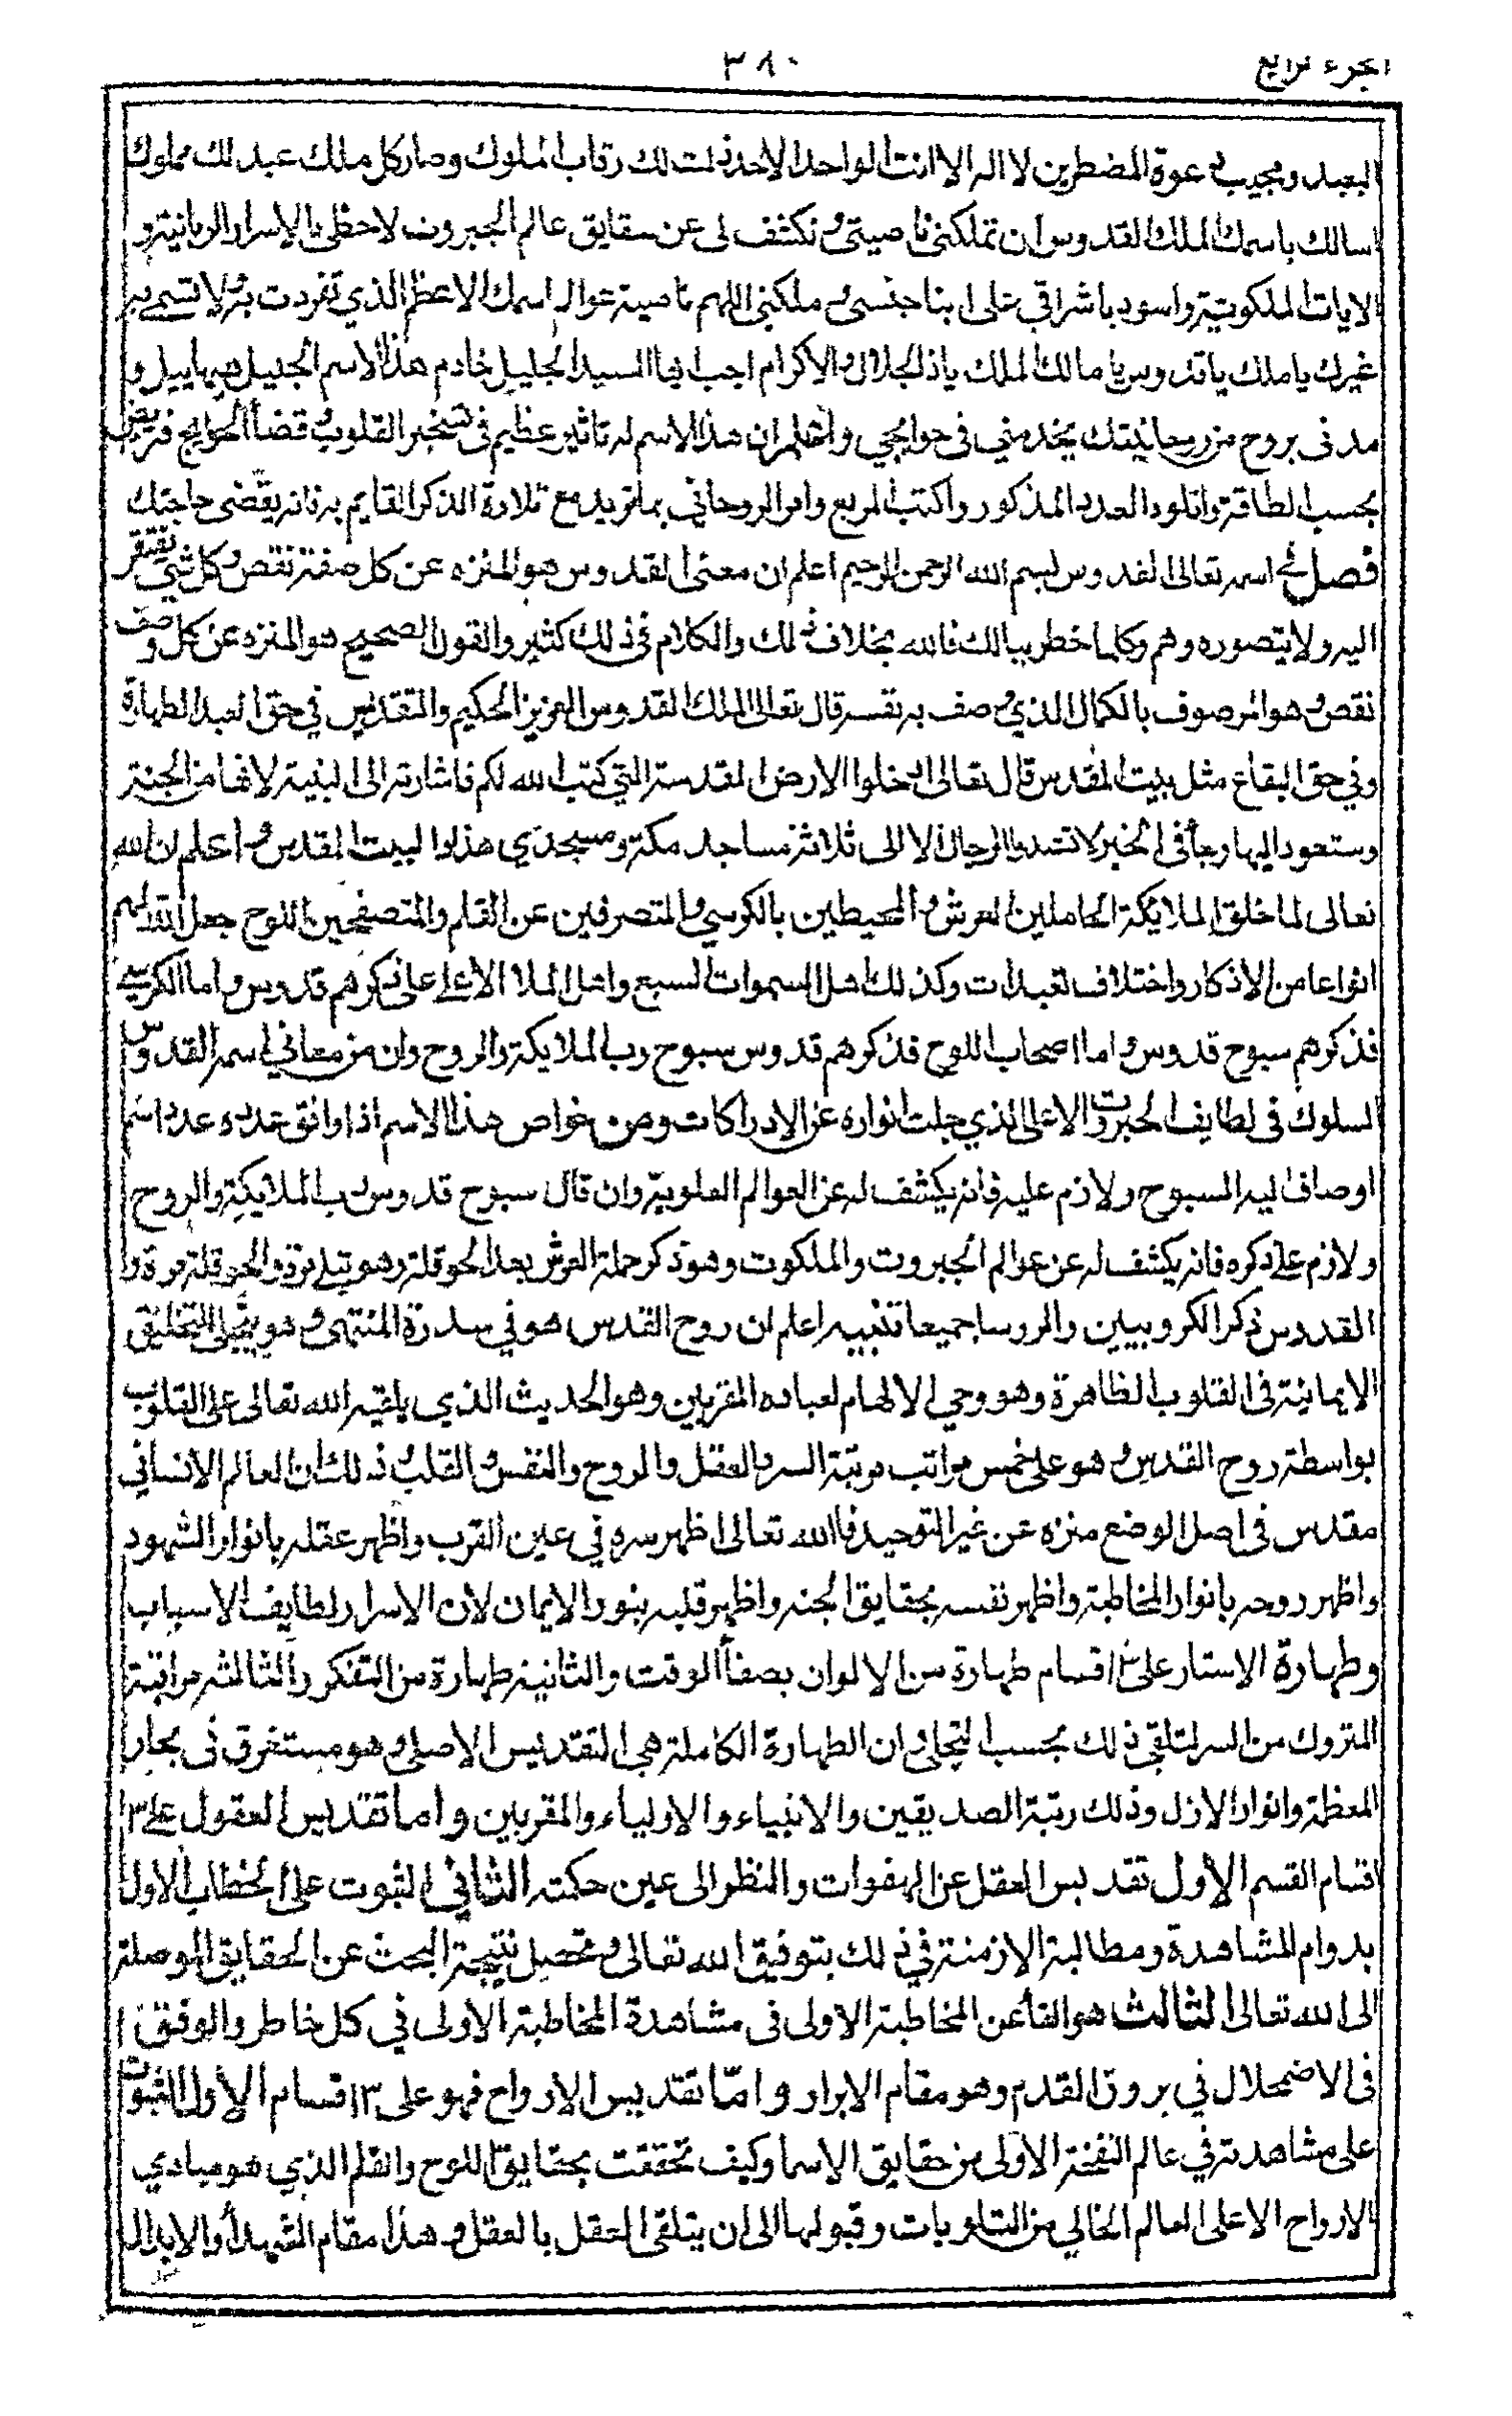 الجزء الرابع
٣٨٠
البعيد ومجيب دعوة المضطرين لا اله الا انت الواحد الاحد ذلت لك رقاب الملوك وصار كل ملك عبد لك مملوك
اسالك باسمك الملك القدوس ان تملكني ناصيتي وتكشف لي عن حقايق عالم الجبروت لاحظى بالاسرار الربانية و
الايات الملكوتية واسود باشراقي على ابنا جنسي وملكني اللهم ناصية عوالم اسمك الاعظم الذي تفردت به ولا تسمى به
غيرك يا ملك يا قدوس يا مالك الملك يا ذا الجلال والاكرام اجب ايها السيد الجليل خادم هذا الاسم الجليل هيهاييل و
مدني بروح من روحانيتك يخدمني في حوايجي واعلم ان هذا الاسم له تاثير عظيم في تسخير القلوب وقضاء الحوايج فتريض
بحسب الطاقة واتلو العدد المذكور واكتب المربع وامر الروحاني بما تريد مع تلاوة الذكر القايم به فانه يقضى حاجتك
فصل في اسمه تعالى القدوس بسم الله الرحمن الرحيم اعلم ان معنى القدوس هو المنزه عن كل صفة نقص وكل شي يفتقر
اليه ولا يتصوره وهم وكلما خطر ببالك فالله بخلاف ذلك والكلام في ذلك كثير والقول الصحيح هو المنزه عن كل وصف
نقص وهو الموصوف بالكمال الذي وصف به نفسه قال تعالى الملك القدوس العزيز الحكيم والتقديس في حق العبد الطهارة
وفي حق البقاع مثل بيت المقدس قال تعالى ادخلوا الارض المقدسة التي كتب الله لكم فاشارته الى البنية لانها من الجنة
وستعود اليها وجاء في الخبر لا تشد الرحال الا الى ثلاثة مساجد مكة ومسجدي هذا والبيت المقدس واعلم ان الله
تعالى لما خلق الملايكة الحاملين العرش والمحيطين بالكرسي والمتصرفين عن القلم والمتصفحين اللوح جعل الله لهم
انواعا من الاذكار واختلاف تعبدات وكذلك اهل السموات السبع واهل الملا الاعلى على ذكرهم قدوس واما الكروبيين
فذكرهم سبوح قدوس واما اصحاب اللوح فذكرهم قدوس سبوح رب الملايكة والروح وان من معاني اسمه القدوس
السلوك في لطايف الجبروت الاعلى الذي جلت انواره عن الادراكات ومن خواص هذا الاسم اذا وافق عدده عدد اسم
اوصاف ليه السبوح ولازم عليه فانه يكشف له عن العوالم العلوية وان قال سبوح قدوس رب الملايكة والروح
ولازم على ذكره فانه يكشف له عن عوالم الجبروت والملكوت وهو ذكر حملة العرش بعد الحوقلة وهو والحوقلة مرة و
القدوس ذكر الكروبيين والروسا جميعا تنبيه اعلم ان روح القدس هو في سدرة المنتهى وهو التخليق
الايمانية في القلوب الطاهرة وهو وحي الالهام لعباده المقربين وهو الحديث الذي يلقيه الله تعالى على القلوب
بواسطة روح القدس وهو على خمس مراتب مرتبة السر والعقل والروح والنفس والقلب وذلك ان العالم الانساني
مقدس في اصل الوضع منزه عن غير التوحيد فالله تعالى اظهر سره في عين القرب واظهر عقله بانوار الشهود
واظهر روحه بانوار المخاطبة واظهر نفسه بحقايق الجنه واظهر قلبه بنور الايمان لان الاسرار لطايف الاسباب
وطهارة الاستار على ٣ اقسام طهارة من الالوان بصفاء الوقت والثانية طهارة من التفكر والثالثة مراقبة
المتروك من السر لتلقي ذلك بحسب التجلي وان الطهارة الكاملة هي التقديس الاصلي وهو مستغرق في بحار
العظمة وانوار الازل وذلك رتبة الصديقين والانبياء والاولياء والمقربين واما تقديس العقول على ٣
اقسام القسم الاول تقديس العقل عن الهفوات والنظر الى عين حكمته الثاني الثبوت على الخطاب الاول
بدوام المشاهدة ومطالبة الازمنة في ذلك بتوفيق الله تعالى وتحصل نتيجة البحث عن الحقايق الموصلة
الى الله تعالى الثالث هو الفناء عن المخاطبة الاولى في مشاهدة المخاطبة الاولى في كل خاطر والوفق
في الاضمحلال في بروق القدم وهو مقام الابرار وامّا تقديس الارواح فهو على ٣ اقسام الاول الثبوت
على مشاهدته في عالم النفخة الاولى من حقايق الاسما وكيف تحققت بحقايق اللوح والقلم الذي هو مبادي
الارواح الاعلى العالم الخالي من التلويات وقبولها الى ان يتلقى العقل بالعقل وهذا مقام الشهداء والابدال